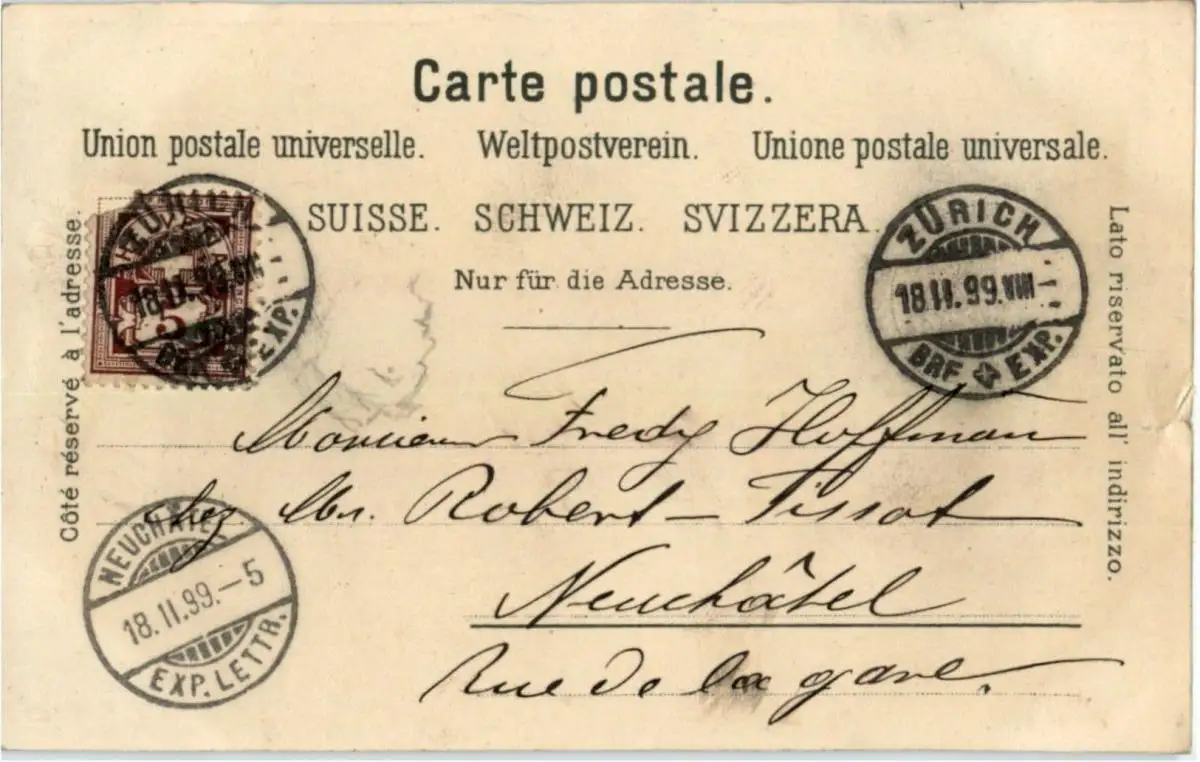 Carte postale.
Union postale universelle. Weltpostverein. Unione postale universale.
SUISSE. SCHWEIZ. SVIZZERA.
Nur für die Adresse.
Côté réservé à l'adresse.
Lato riservato all' indirizzo.
18.II.99.VIII
BRF EXP.
5
ZÜRICH
18.II.99.VIII
BRF EXP.
Monsieur Fredy Hoffman
chez Mr. Robert-Tissot
Neuchâtel
Rue de la gare.
NEUCHÂTEL
18.II.99.-5
EXP. LETTR.